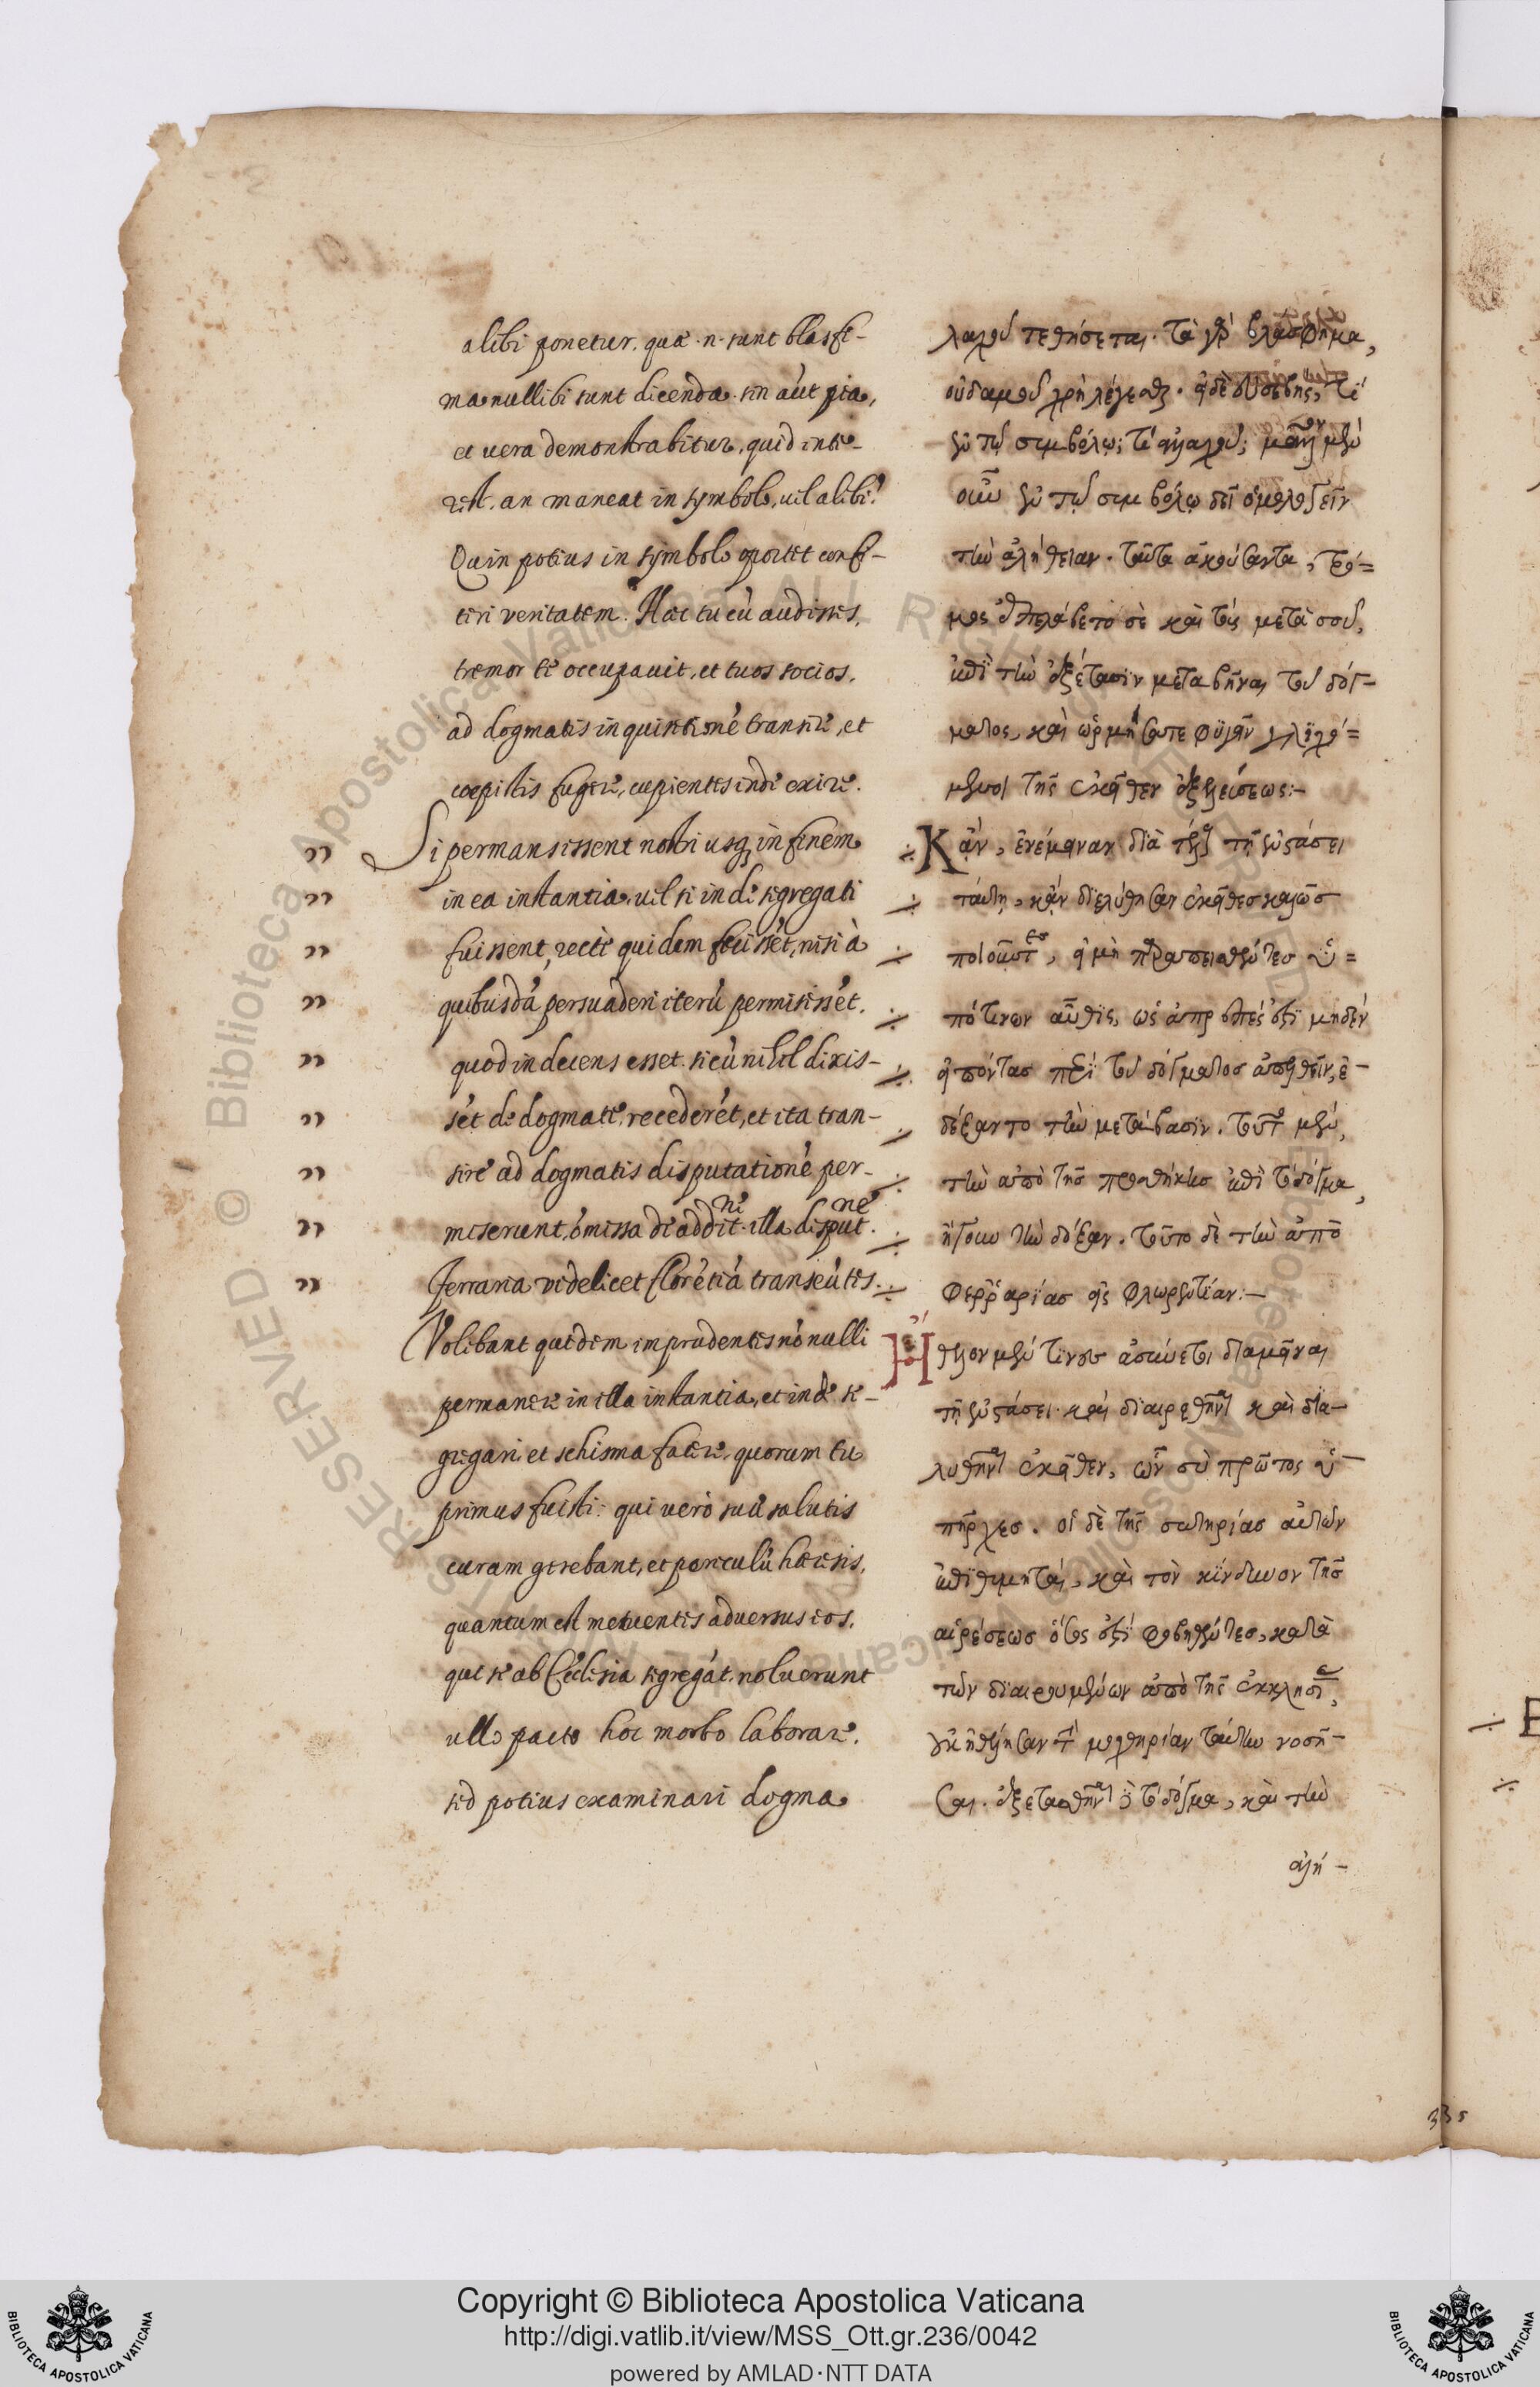 alibi ponetur. quae .n. sunt blasfe-
ma nullibi sunt dicenda. sin aut pia,
et vera demonstrabitur, quid inte-
rest. an maneat in symbolo, vel alibi?
Quin potius in symbolo oportet confi-
teri veritatem. Haec tu cu audisses,
tremor te occupavit, et tuos socios,
ad dogmatis inquisitione transire, et
coepistis fugere, cupientes inde exire.
Si permansissent nostri usq; in finem
in ea instantia, vel si inde segregati
fuissent, recte quidem fecisset, nisi à
quibusda persuaderi iteru permisisset.
quod indecens esset. si cu nihil dixis-
set de dogmate, recederet, et ita tran-
sire ad dogmatis disputatione per-
miserunt, omissa de addit.ne illa disput.ne
Ferraria videlicet Floretia transeutes.
Volebant quidem imprudentes nonulli
permanere in illa instantia, et inde se-
gregari et schisma facere, quorum tu
primus fuisti: qui vero suae salutis
curam gerebant, et periculu haeresis,
quantum est metuentes adversus eos,
qui se ab Ecclesia segregat, noluerunt
ullo pacto hoc morbo laborare,
sed potius examinari dogma
λαχοῦ τεθήσεται. τὰ γὰρ βλάσφημα,
οὐδαμοῦ χρὴ λέγεσθαι. εἰ δὲ εὐσεβής, τί
ἐν τῷ συμβόλῳ; τί ἀλλαχοῦ; μᾶλλον μὲν
οὖν ἐν τῷ συμβόλῳ δεῖ ὁμολογεῖν
τὴν ἀλήθειαν. ταῦτα ἀκούσαντα, τρό=
μος ὑπελάβετο σὲ καὶ τοὺς μετὰ σοῦ,
ἐπὶ τὴν ἐξέτασιν μεταβῆναι τοῦ δόγ-
ματος, καὶ ὡρμήσατε φυγεῖν γλιχό=
μενοι τῆς ἐκεῖθεν ἐξελεύσεως:-
Κἂν, ἐνέμειναν διὰ τέλους τῇ ἐνστάσει
ταύτῃ, κἂν διελύθησαν ἐκεῖθεν καλῶς
ποιοῦντες, εἰ μὴ παρεπείσθησαν ὑ=
πό τινων αὖθις, ὡς ἀπρεπές ἐστι μηδέν
εἰπόντας περὶ τοῦ δόγματος ἀπελθεῖν, ἐ-
δέξαντο τὴν μετάβασιν. τοῦτο μὲν,
τὴν ἀπὸ τῆς προσθήκης ἐπὶ τὸ δόγμα,
ἤγουν τὴν δόξαν. τοῦτο δὲ τὴν ἀπὸ
Φερραρίας εἰς Φλωρεντίαν:-
Ἤθελον μὲν τινες ἀσύνετοι διαμεῖναι
τῇ ἐνστάσει. καὶ διαιρεθῆναι καὶ δια-
λυθῆναι ἐκεῖθεν, ὧν σὺ πρῶτος ὑ-
πῆρχες. οἱ δὲ τῆς σωτηρίας αὐτῶν
ἐπιθυμηταί, καὶ τὸν κίνδυνον τῆς
αἱρέσεως ὅσος ἐστὶ φοβηθέντες, κατὰ
τῶν διαιρουμένων ἀπὸ τῆς ἐκκλησίας,
οὐκ ἠθέλησαν τὴν μοχθηρίαν ταύτην νοσῆ-
σαι. ἐξετασθῆναι δὲ τὸ δόγμα, καὶ τὴν
ἀλή-
335
Copyright © Biblioteca Apostolica Vaticana
http://digi.vatlib.it/view/MSS_Ott.gr.236/0042
powered by AMLAD·NTT DATA